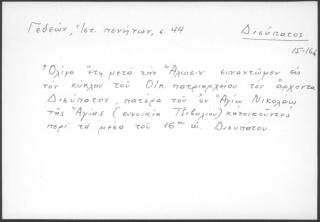 Γεδεών, Ἱστ. πενήτων, σ. 44
Δισύπατος
15-16αι
Ὀλίγα ἔτη μετά τήν Ἅλωσιν συναντῶμεν εἰς
τόν κύκλον τοῦ Οἰκ. πατριαρχείου τόν ἄρχοντα
Δισύπατον, πατέρα τοῦ ἐν Ἁγίῳ Νικολάῳ
τῆς Ἁγίας (συνοικία Τζιβαλίου) κατοικοῦντος
περί τά μέσα τοῦ 16ου αἰ. Δισυπάτου.